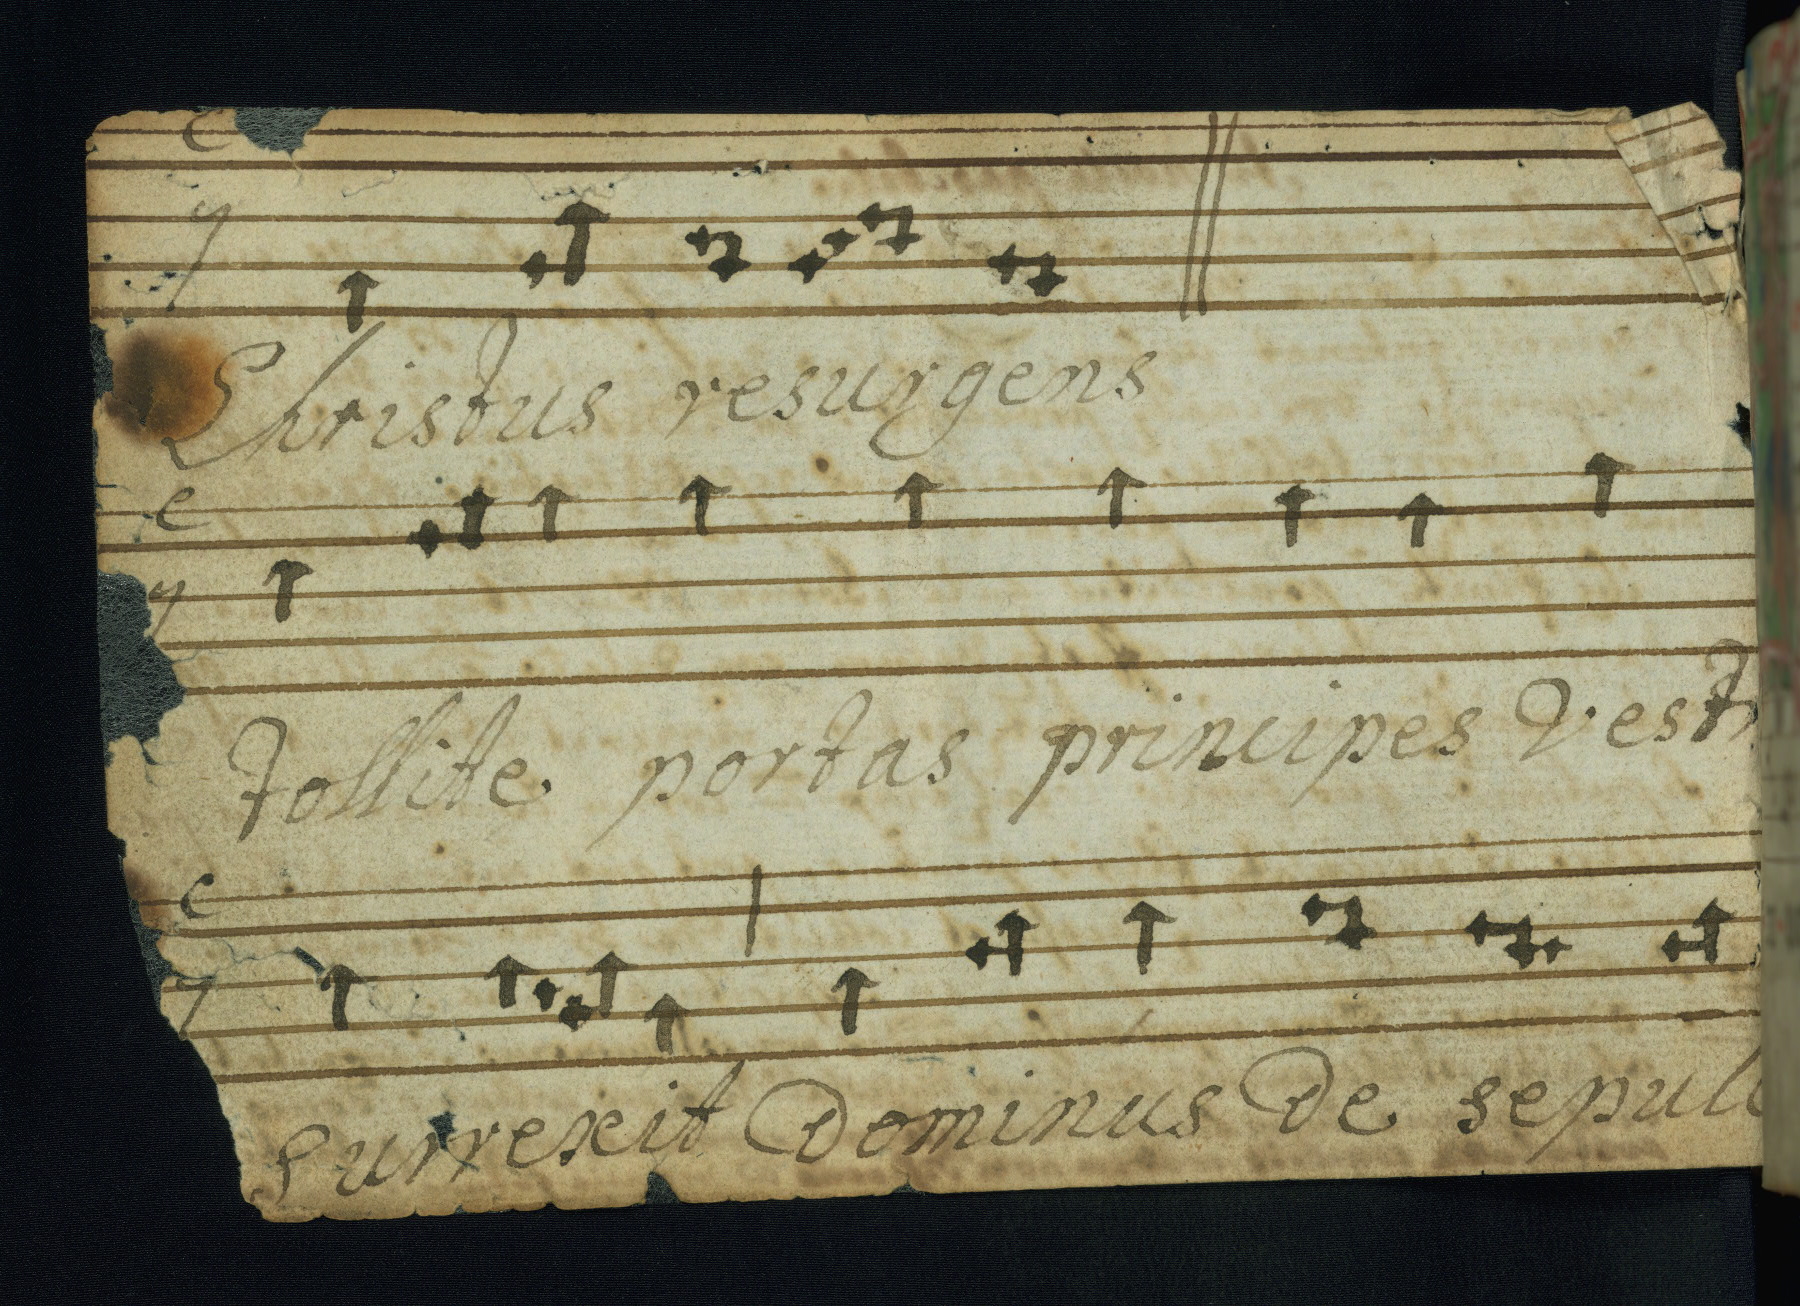 Christus resurgens
Tollite portas principes Vestr
Surrexit Dominus De sepulc